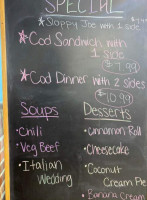 SPECIAL
*Sloppy Joe with 1 side
*Cod Sandwich with
1 side
$7.99
*Cod Dinner with 2 sides
$10.99
Soups
•Chili
•Veg Beef
•Italian
Wedding
Desserts
•Cinnamon Roll
•Cheesecake
•Coconut
Cream Pie
•Banana Cream